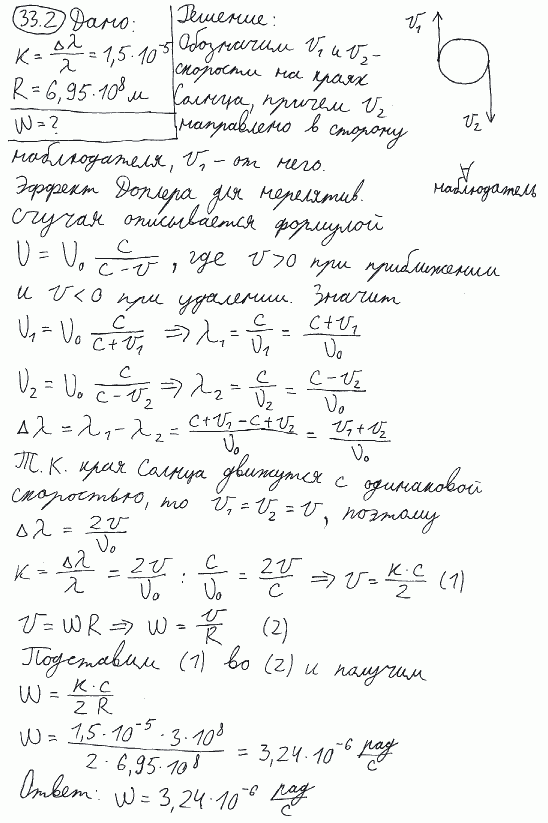 33.2 Дано:
K = Δλ/λ = 1,5·10⁻⁵
R = 6,95·10⁸ м
W = ?
Решение:
Обозначим V₁ и V₂-
скорости на краях
Солнца, причем V₂
направлено в сторону
V₁
V₂
наблюдатель
наблюдателя, V₁ - от него.
Эффект Доплера для нерелятив.
случая описывается формулой
υ = υ₀ c/(c-v), где v>0 при приближении
и v<0 при удалении. Значит
υ₁ = υ₀ c/(c+v₁) ⇒ λ₁ = c/υ₁ = (c+v₁)/υ₀
υ₂ = υ₀ c/(c-v₂) ⇒ λ₂ = c/υ₂ = (c-v₂)/υ₀
Δλ = λ₁-λ₂ = (c+v₁-c+v₂)/υ₀ = (v₁+v₂)/υ₀
Т.к. края Солнца движутся с одинаковой
скоростью, то v₁=v₂=v, поэтому
Δλ = 2v/υ₀
K = Δλ/λ = 2v/υ₀ : c/υ₀ = 2v/c ⇒ v = K·c/2 (1)
v = WR ⇒ W = v/R (2)
Подставим (1) во (2) и получим
W = K·c/2R
W = 1,5·10⁻⁵·3·10⁸/2·6,95·10⁸ = 3,24·10⁻⁶ рад/с
Ответ: W = 3,24·10⁻⁶ рад/с